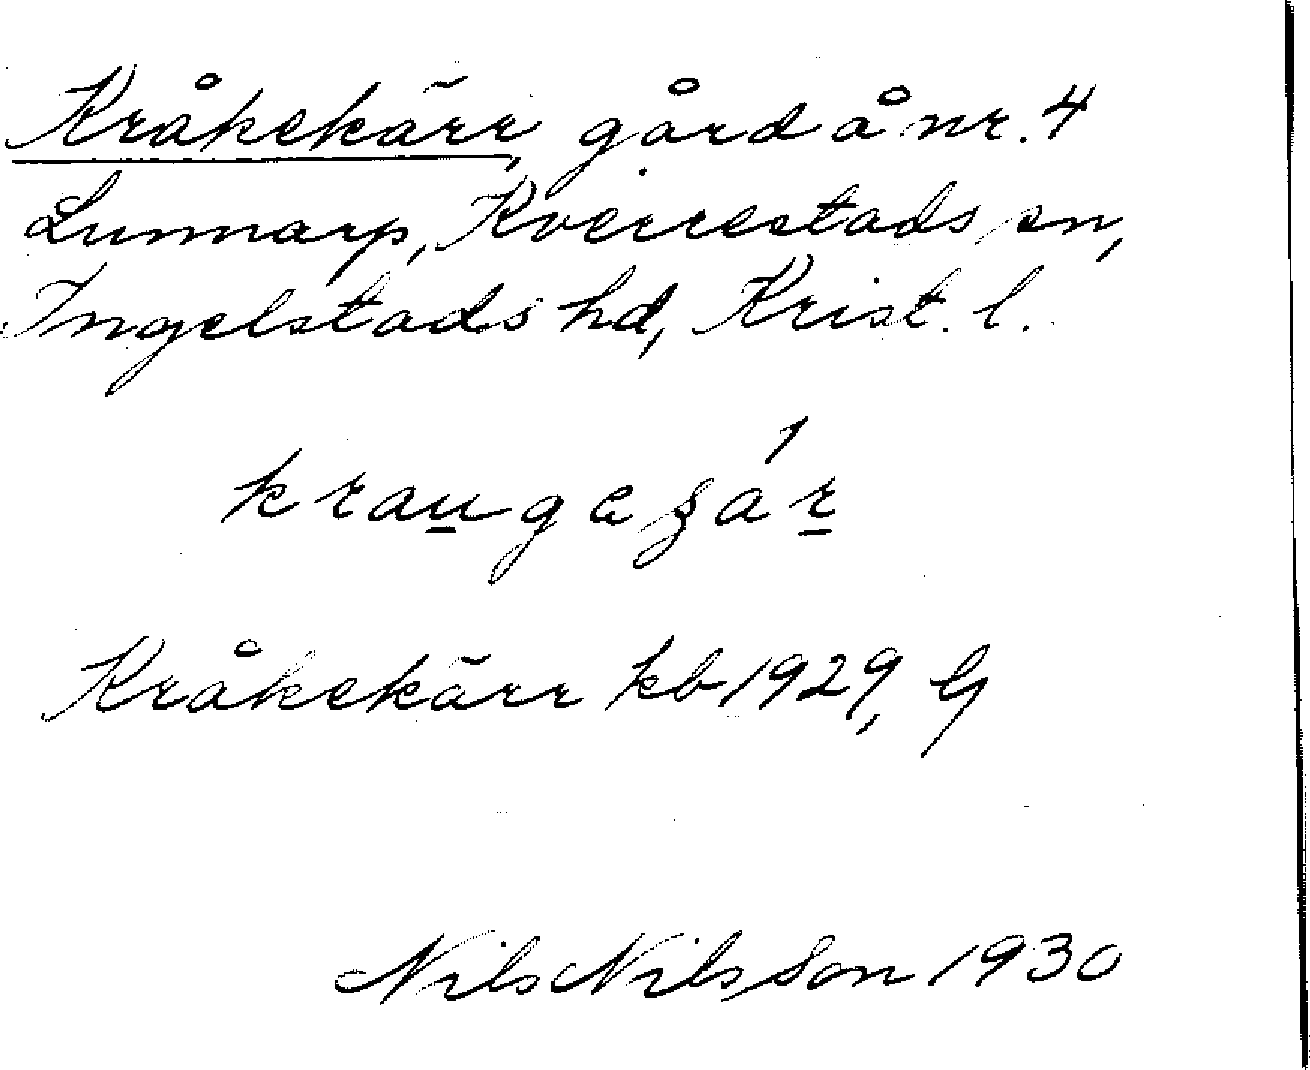 Kråkekärr, gård å nr. 4
Lunnarp, Kverrestads sn,
Ingelstads hd, Krist. l.
Kråkekärr kb 1929, G
Nils Nilsson 1930